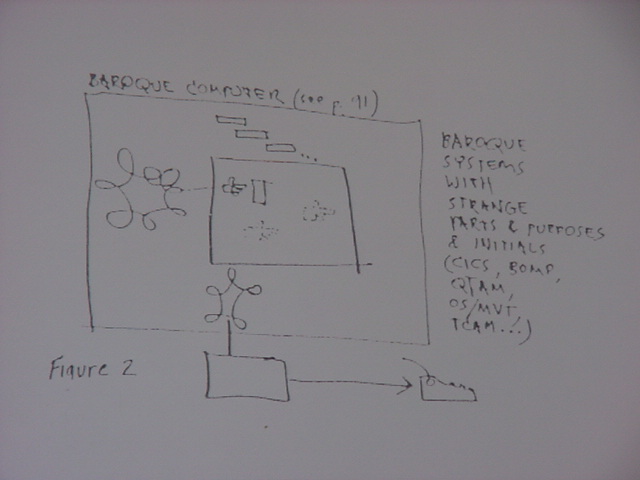 BAROQUE COMPUTER (see p. 91)
BAROQUE
SYSTEMS
WITH
STRANGE
PARTS & PURPOSES
& INITIALS
(CICS, BOMP,
QTAM,
OS/MVT,
TCAM...)
Figure 2